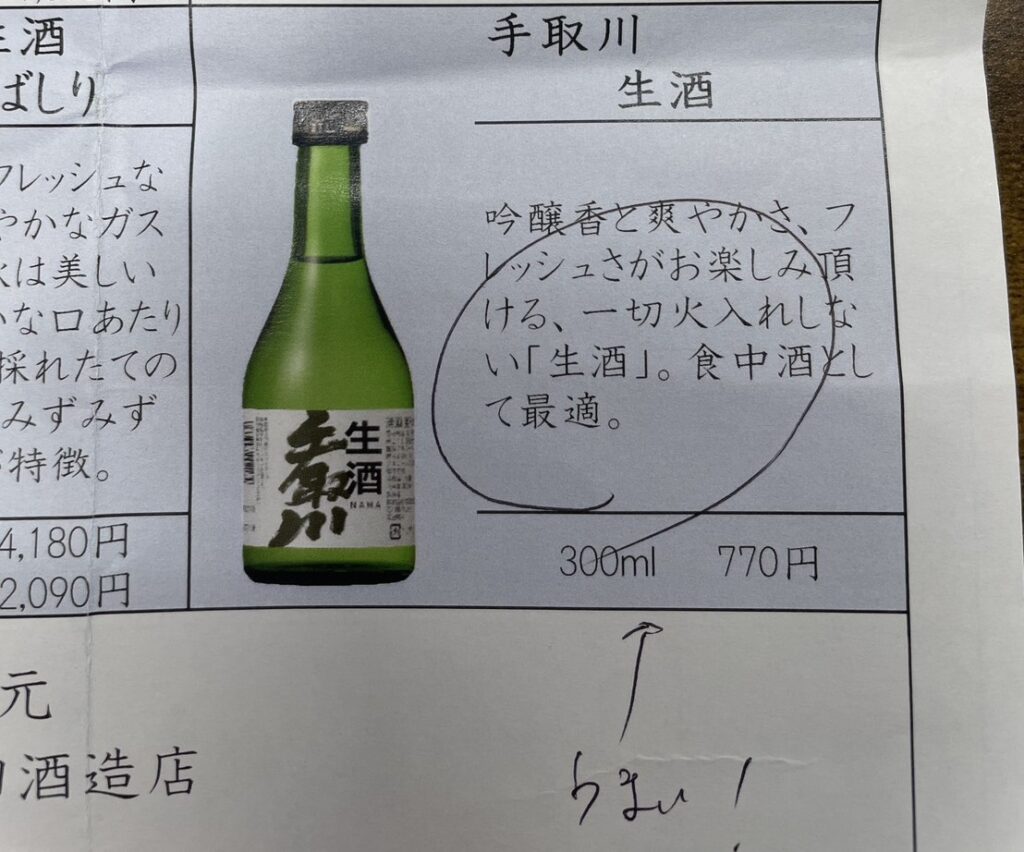 生酒
ばしり
フレッシュな
やかなガス
は美しい
な口あたり
採れたての
みずみず
特徴。
4,180円
2,090円
手取川
生酒
吟醸香と爽やかさ、フ
レッシュさがお楽しみ頂
ける、一切火入れしな
い「生酒」。食中酒とし
て最適。
手取川
生酒
NAMA
300ml 770円
元
酒造店
うまい!